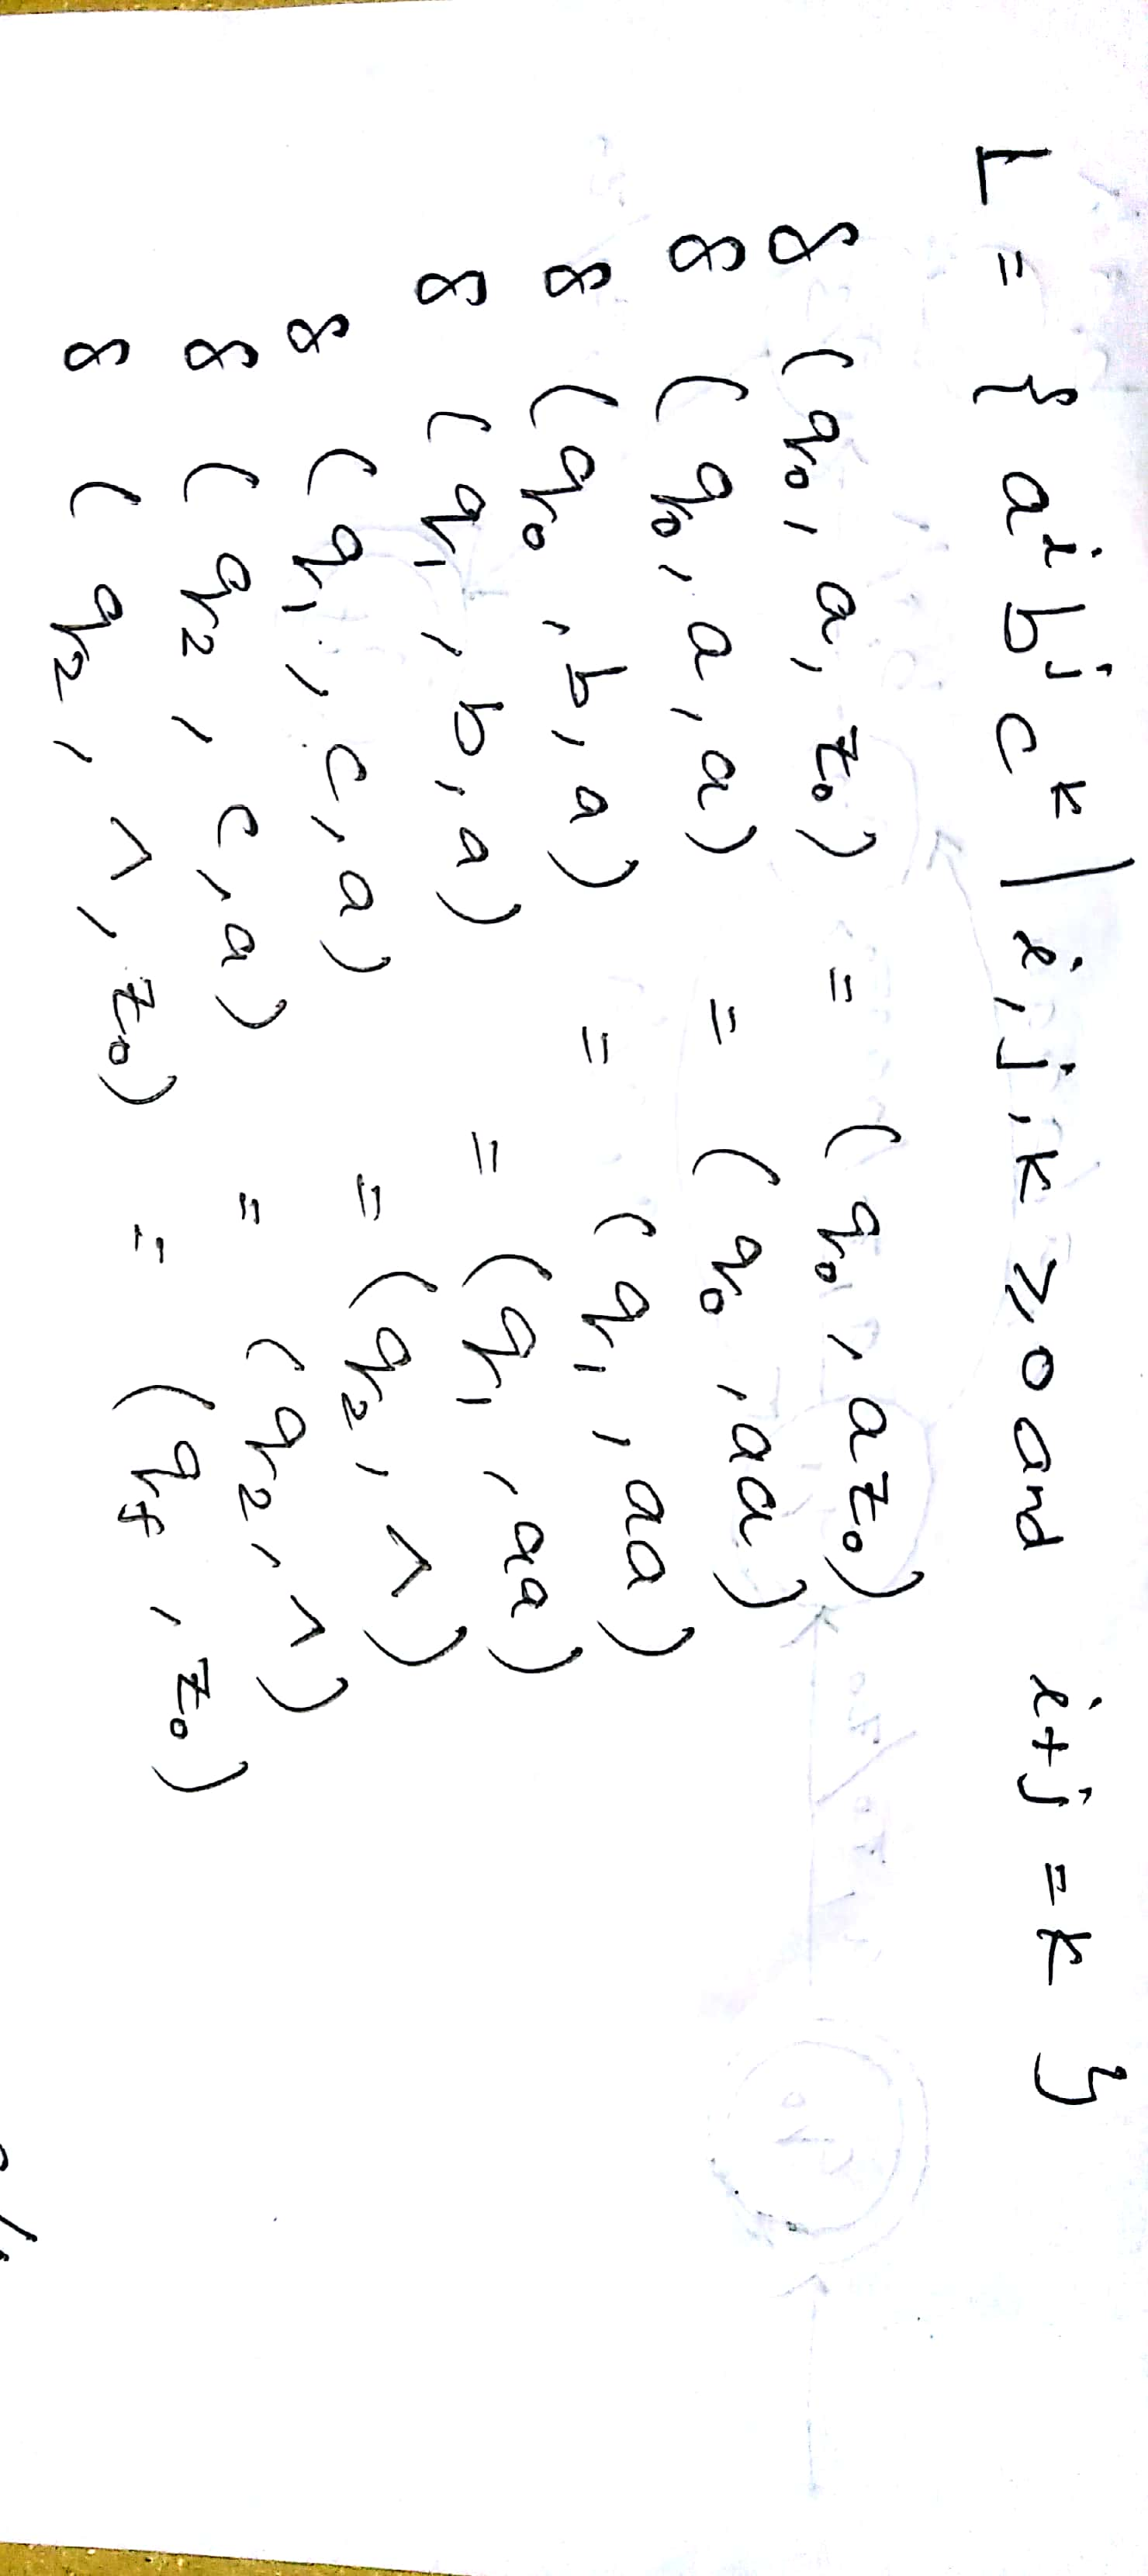 L = { aⁱ bʲ cᵏ | i, j, k ≥ 0 and i+j = k }
δ (q₀, a, z₀) = (q₀, a z₀)
δ (q₀, a, a) = (q₀, aa)
δ (q₀, b, a) = (q₁, aa)
δ (q₁, b, a) = (q₁, aa)
δ (q₁, c, a) = (q₂, ^)
δ (q₂, c, a) = (q₂, ^)
δ (q₂, ^, z₀) = (q_f, z₀)